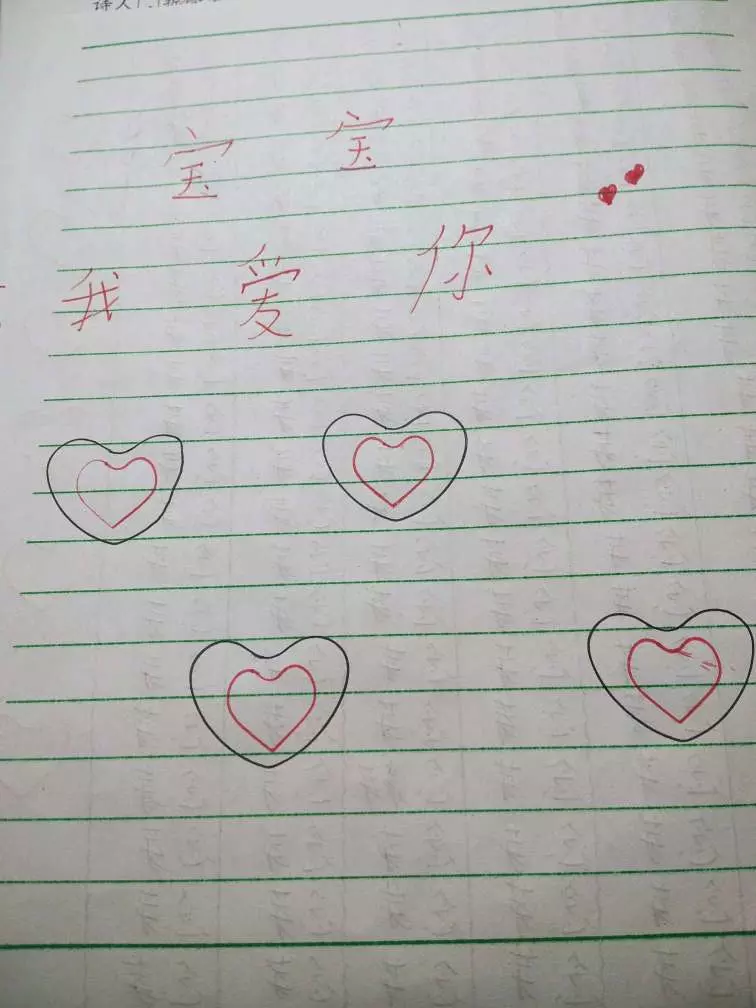 宝 宝
我 爱 你